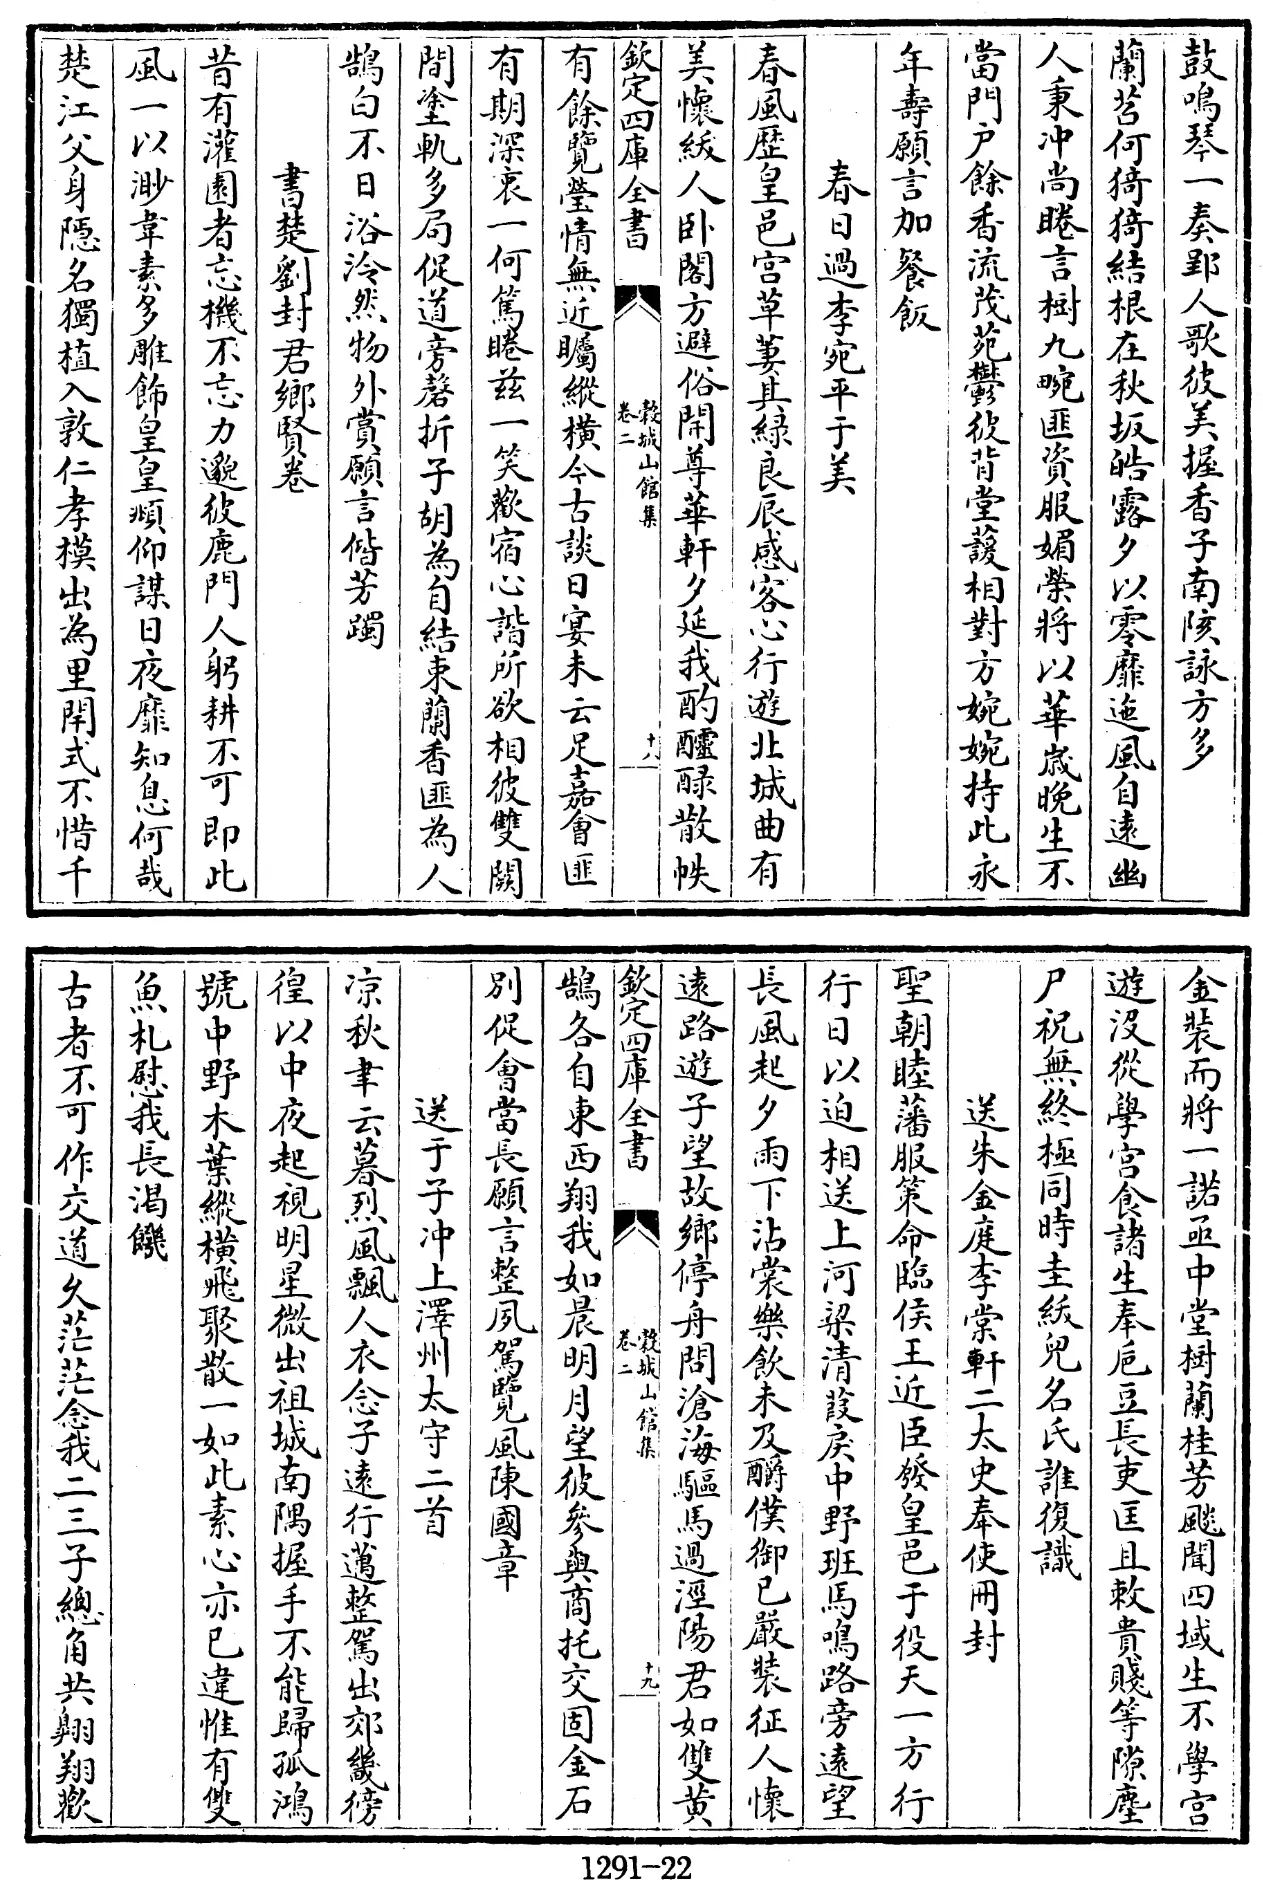 鼓鳴琴一奏郢人歌彼美握香子南陔詠方多
蘭苕何猗猗結根在秋坂皓露夕以零靡迤風自遠幽
人秉冲尚睠言樹九畹匪資服媚榮將以華歲晚生不
當門户餘香流茂苑鬱彼背堂萲相對方婉婉持此永
年壽願言加餐飯
春日過李宛平于美
春風歷皇邑宫草萋其緑良辰感客心行遊北城曲有
美懷紱人卧閣方避俗開尊華軒夕延我酌醽醁散帙
欽定四庫全書
穀城山館集
卷二
十八
有餘覽瑩情無近矚縱横今古談日宴未云足嘉會匪
有期深衷一何篤睠兹一笑歡宿心諧所欲相彼雙闕
間塗軌多局促道旁磬折子胡為自結束蘭香匪為人
鵠白不日浴泠然物外賞願言偕芳躅
書楚劉封君鄉賢卷
昔有灌園者忘機不忘力邈彼鹿門人躬耕不可即此
風一以渺韋素多雕飾皇皇頫仰謀日夜靡知息何哉
楚江父身隱名獨植入敦仁孝模出為里閈式不惜千
金裝而將一諾亟中堂樹蘭桂芳飈聞四域生不學宫
遊没從學宫食諸生奉巵豆長吏匡且敕貴賤等隙塵
尸祝無終極同時圭紱兒名氏誰復識
送朱金庭李棠軒二太史奉使冊封
聖朝睦藩服策命臨侯王近臣發皇邑于役天一方行
行日以迫相送上河梁清葭戾中野班馬鳴路旁遠望
長風起夕雨下沾裳樂飲未及釂僕御已嚴裝征人懷
遠路遊子望故鄉停舟問滄海驅馬過涇陽君如雙黄
欽定四庫全書
穀城山館集
卷二
十九
鵠各自東西翔我如晨明月望彼參與商托交固金石
别促會當長願言整夙駕覽風陳國章
送于子冲上澤州太守二首
凉秋聿云暮烈風飄人衣念子遠行邁整駕出郊畿徬
徨以中夜起視明星微出祖城南隅握手不能歸孤鴻
號中野木葉縱横飛聚散一如此素心亦已違惟有雙
魚札慰我長渴饑
古者不可作交道久茫茫念我二三子總角共翺翔歡
1291-22